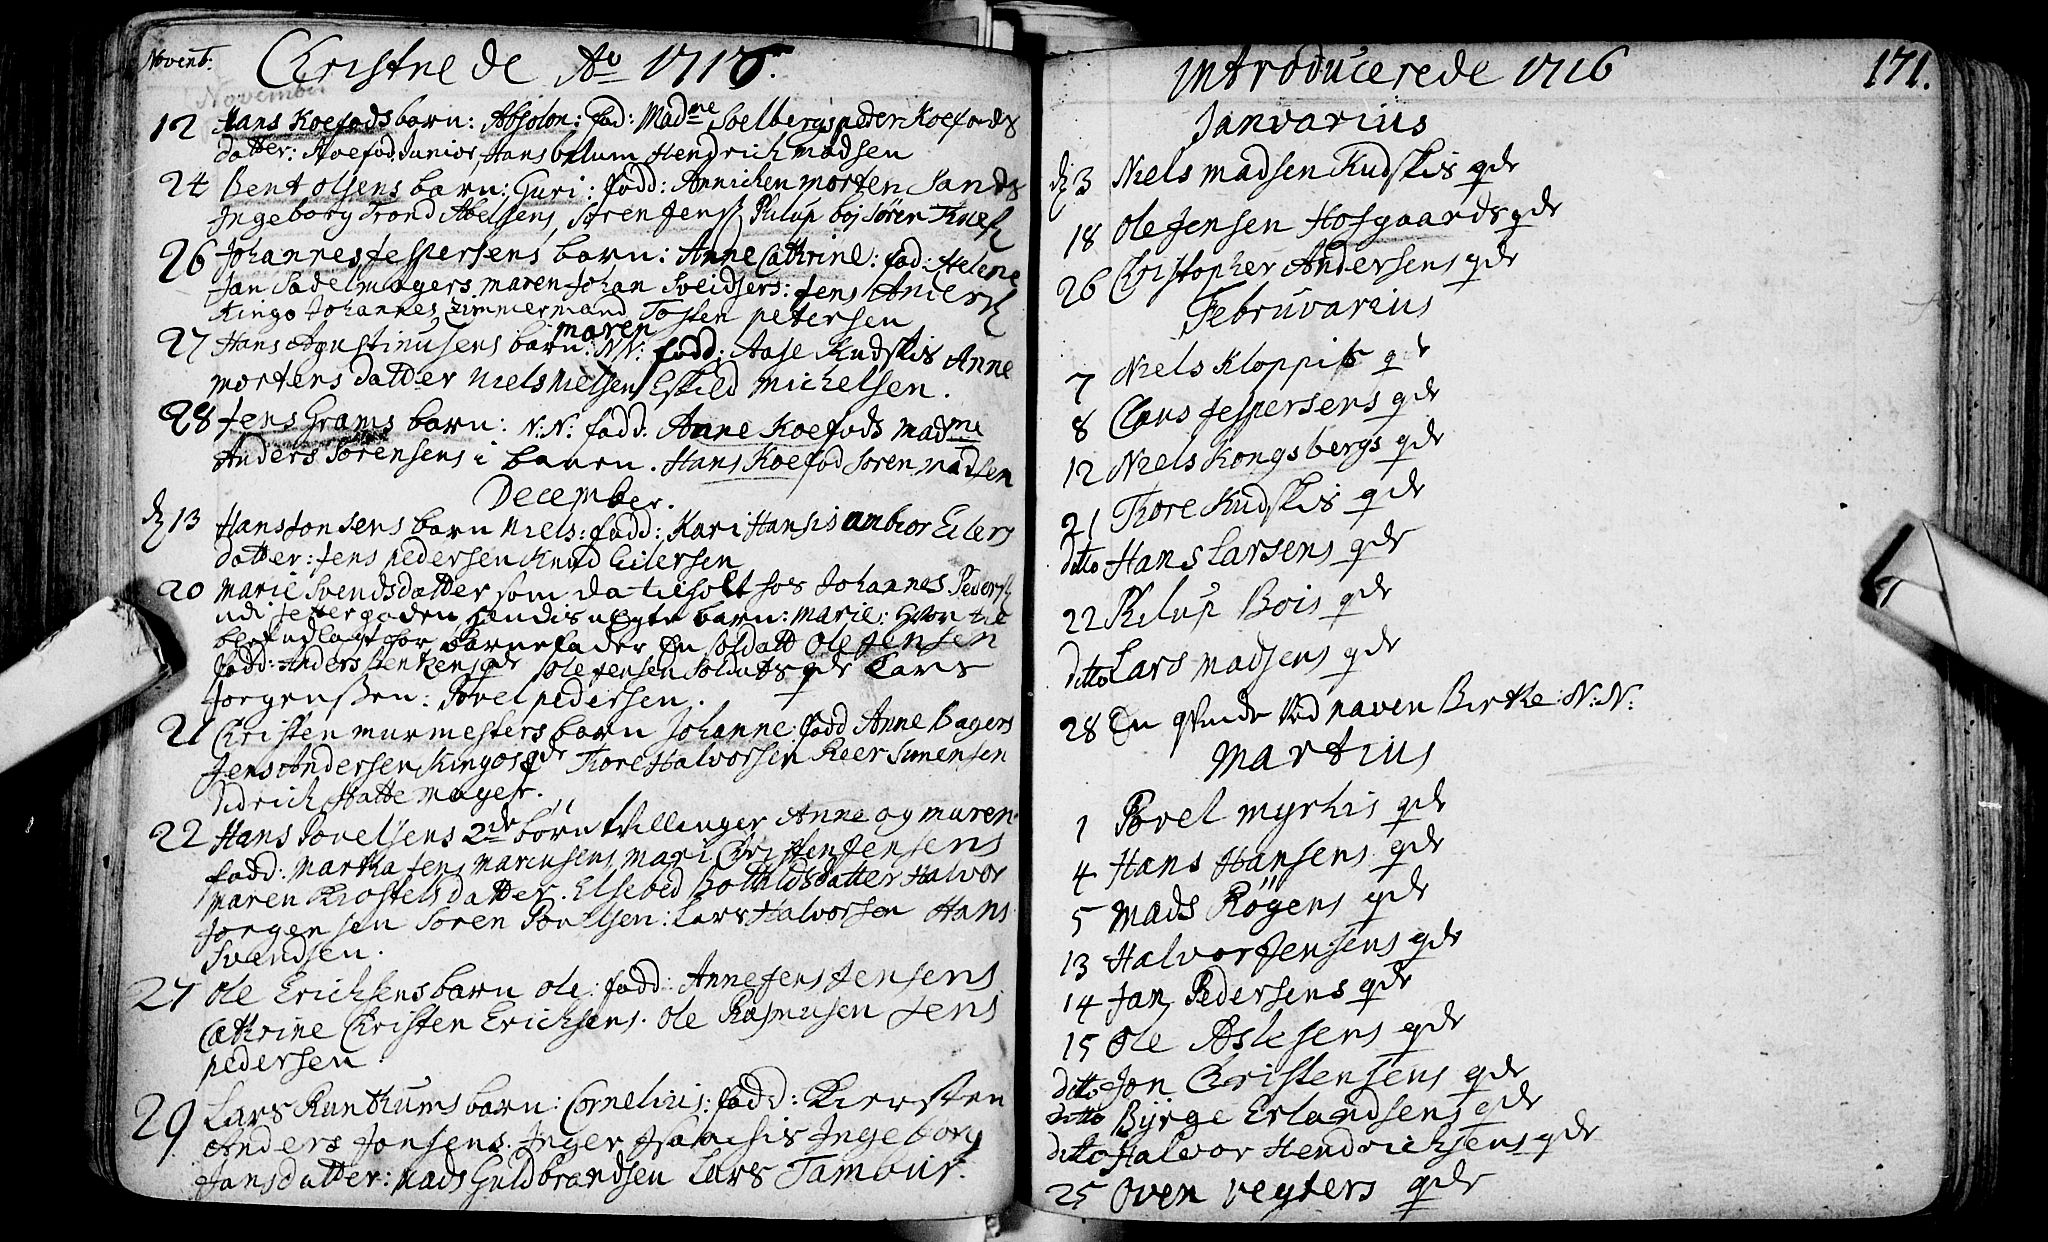 Novemb:
Christnede Ao 1716.
November
12 Hans Koefods barn: Absolon: fad: Madme Soelbergs peder Koefods
datter: Koefod Junior, Hans blum Hendrich madsen
24 Bent olsens barn: Guri: fadd: Annichen morten Sands
Ingeborg Trond Abelsens, Sören Jens Philup boj Sören
26 Johannes Jespersens barn: Anne Cathrine: fad: Helene
Jan Sadelmagers maren Johan Sveidsers: Jens Anders
Kingo Johannes Zimmermand Tosten petersen
27 Hans Agustinusens barn: N.N: maren fadd: Aase Kudskis Anne
mortens datter Niels Nielsen Eskild michelsen.
28 Jens Grams barn: N.N: fadd: Anne Koefods madme
Anders Sörensens i barn. Hans Koefod Sören madsen
December.
d 13 Hans Jonsens barn Niels: fadd: Kari Hansis anbior Eilers
datter: Jens pedersen Knud Eilersen
20 Marie Svendsdatter som da tilholt hos Johannes Peders
udi hendis uegte barn: marie: hvor til
blef udlagt for barnefader En soldatt Ole Jensen
fadd: Anders qde Ole Jensen Soldats qde Lars
Jorgensen: Povel pedersen.
21 Christen murmesters barn Johanne: fadd Anne Bagers
Jens Andersen Kingos qde Tore Halvorsen Peer Simensen
Didrich Hattemager.
22 Hans Povelsens 2de börn tvillinger Anne og maren
fadd: Martha Jens marensens, mari Christen Jensens
maren datter. Elsebed datter Halvor
Jorgensen Sören Povelsen: Lars Halvorsen Hans
Svendsen.
27 Ole Erichsens barn Ole: fadd: Anne Jens Jensens
Cathrine Christen Erichsens. Ole Rasmusen Jens
pedersen
29 Lars Runthums barn: Cornelius: fadd: Kiersten
Anders Jonsens. Inger Isaachsis Ingeborg
Jansdatter: mads Guldbrandsen Lars Tambur.
Introducerede 1716
171.
Janvarius
d 3 Niels madsen Kudskis qde
18 Ole Jensen Hofgaards qde
26 Christopher Andersens qde
Februvarius
7 Niels Kloppis qde
8 Claus Jespersens qde
12 Niels Kongsbergs qde
21 Tore Kudskis qde
ditto Hans Larsens qde
22 Philup Bois qde
ditto Lars madsens qde
28 En qvinde ved naven Birthe: N: N:
Martius
1 Povel myrhis qde
4 Hans Hansens qde
5 Mads Rögens qde
13 Halvor Jensens qde
14 Jan Pedersens qde
15 Ole Aslesens qde
ditto Jon Christensens qde
ditto Byrge Erlandsens qde
ditto Halvor Hendrichsens qde
25 Oven reyters qde